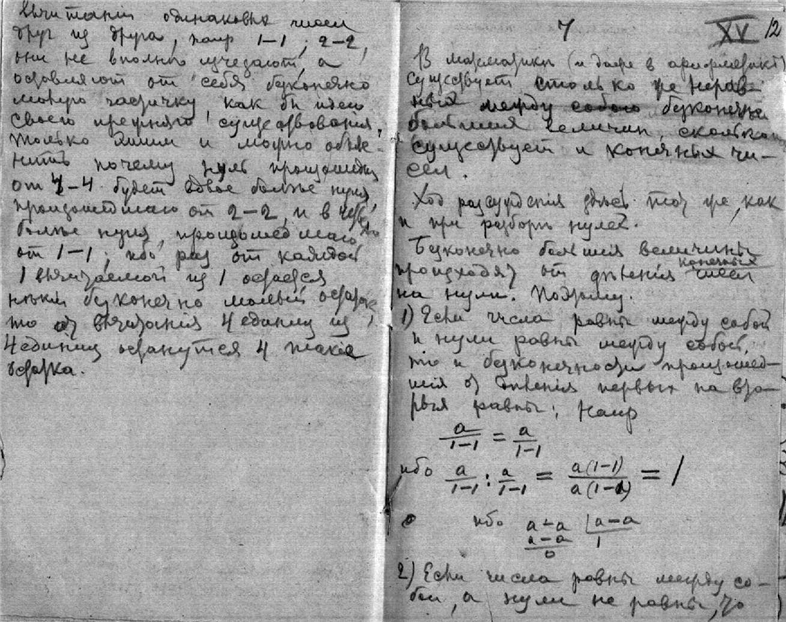 вычитаніи одинаковыхъ чиселъ
другъ изъ друга, напр 1–1; 2–2,
они не вполнѣ изчезаютъ, а
оставляютъ отъ себя безконечно
малую частичку какъ бы идею
своего прежняго существованія.
Только этимъ и можно объяс-
нить почему нуль происшедшій
отъ 4–4 будетъ вдвое больше нуля,
происшедшаго отъ 2–2, и въ
больше нуля, происшедшаго
отъ 1–1, ибо разъ отъ каждой
1 вычитаемой изъ 1 остается
нѣкій безконечно малый остатокъ,
то отъ вычитанія 4 единицъ изъ
4 единицъ останутся 4 такіе
остатка.
7 XV 12
В математикѣ (и даже в арифметикѣ)
существуетъ столько же нерав-
ныхъ между собою безконечно
большихъ величинъ, сколько
существуетъ и конечныхъ чи-
селъ.
Ход разсужденія здѣсь тотъ же, какъ
и при разборѣ нулей.
Безконечно большія величины
происходятъ отъ дѣленія конечныхъ чиселъ
на нули. Поэтому.
1) Если числа равны между собой
и нули равны между собой,
то и безконечности происшед-
шія отъ дѣленія первыхъ на вто-
рыя равны; напр
a/1–1 = a/1–1
ибо a/1–1 : a/1–1 = a(1–1)/a(1–1) = 1
ибо a–a | a–a
a–a 1
0
2) Если числа равны между со-
бой, а нули не равны, то